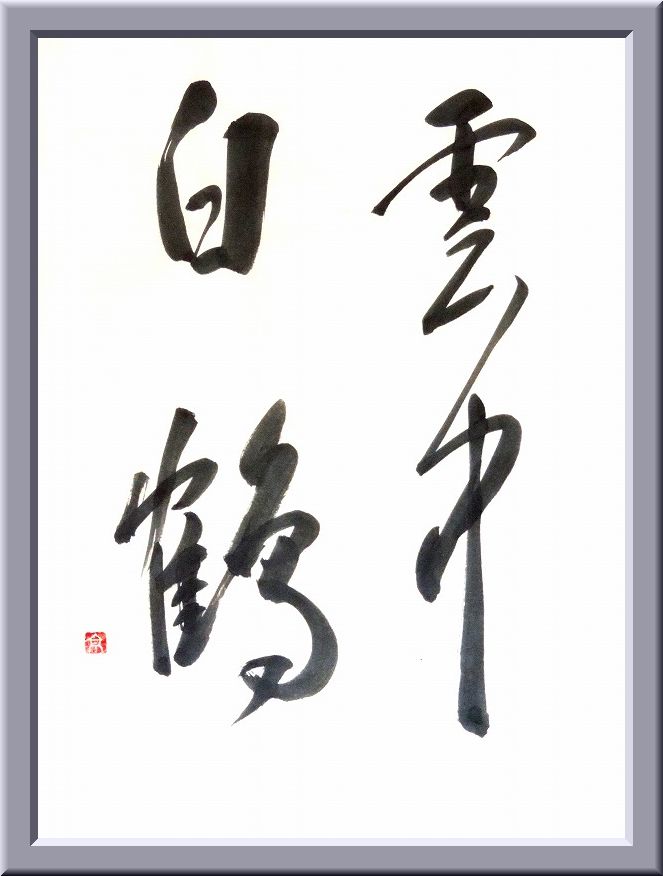 雲中
白鶴